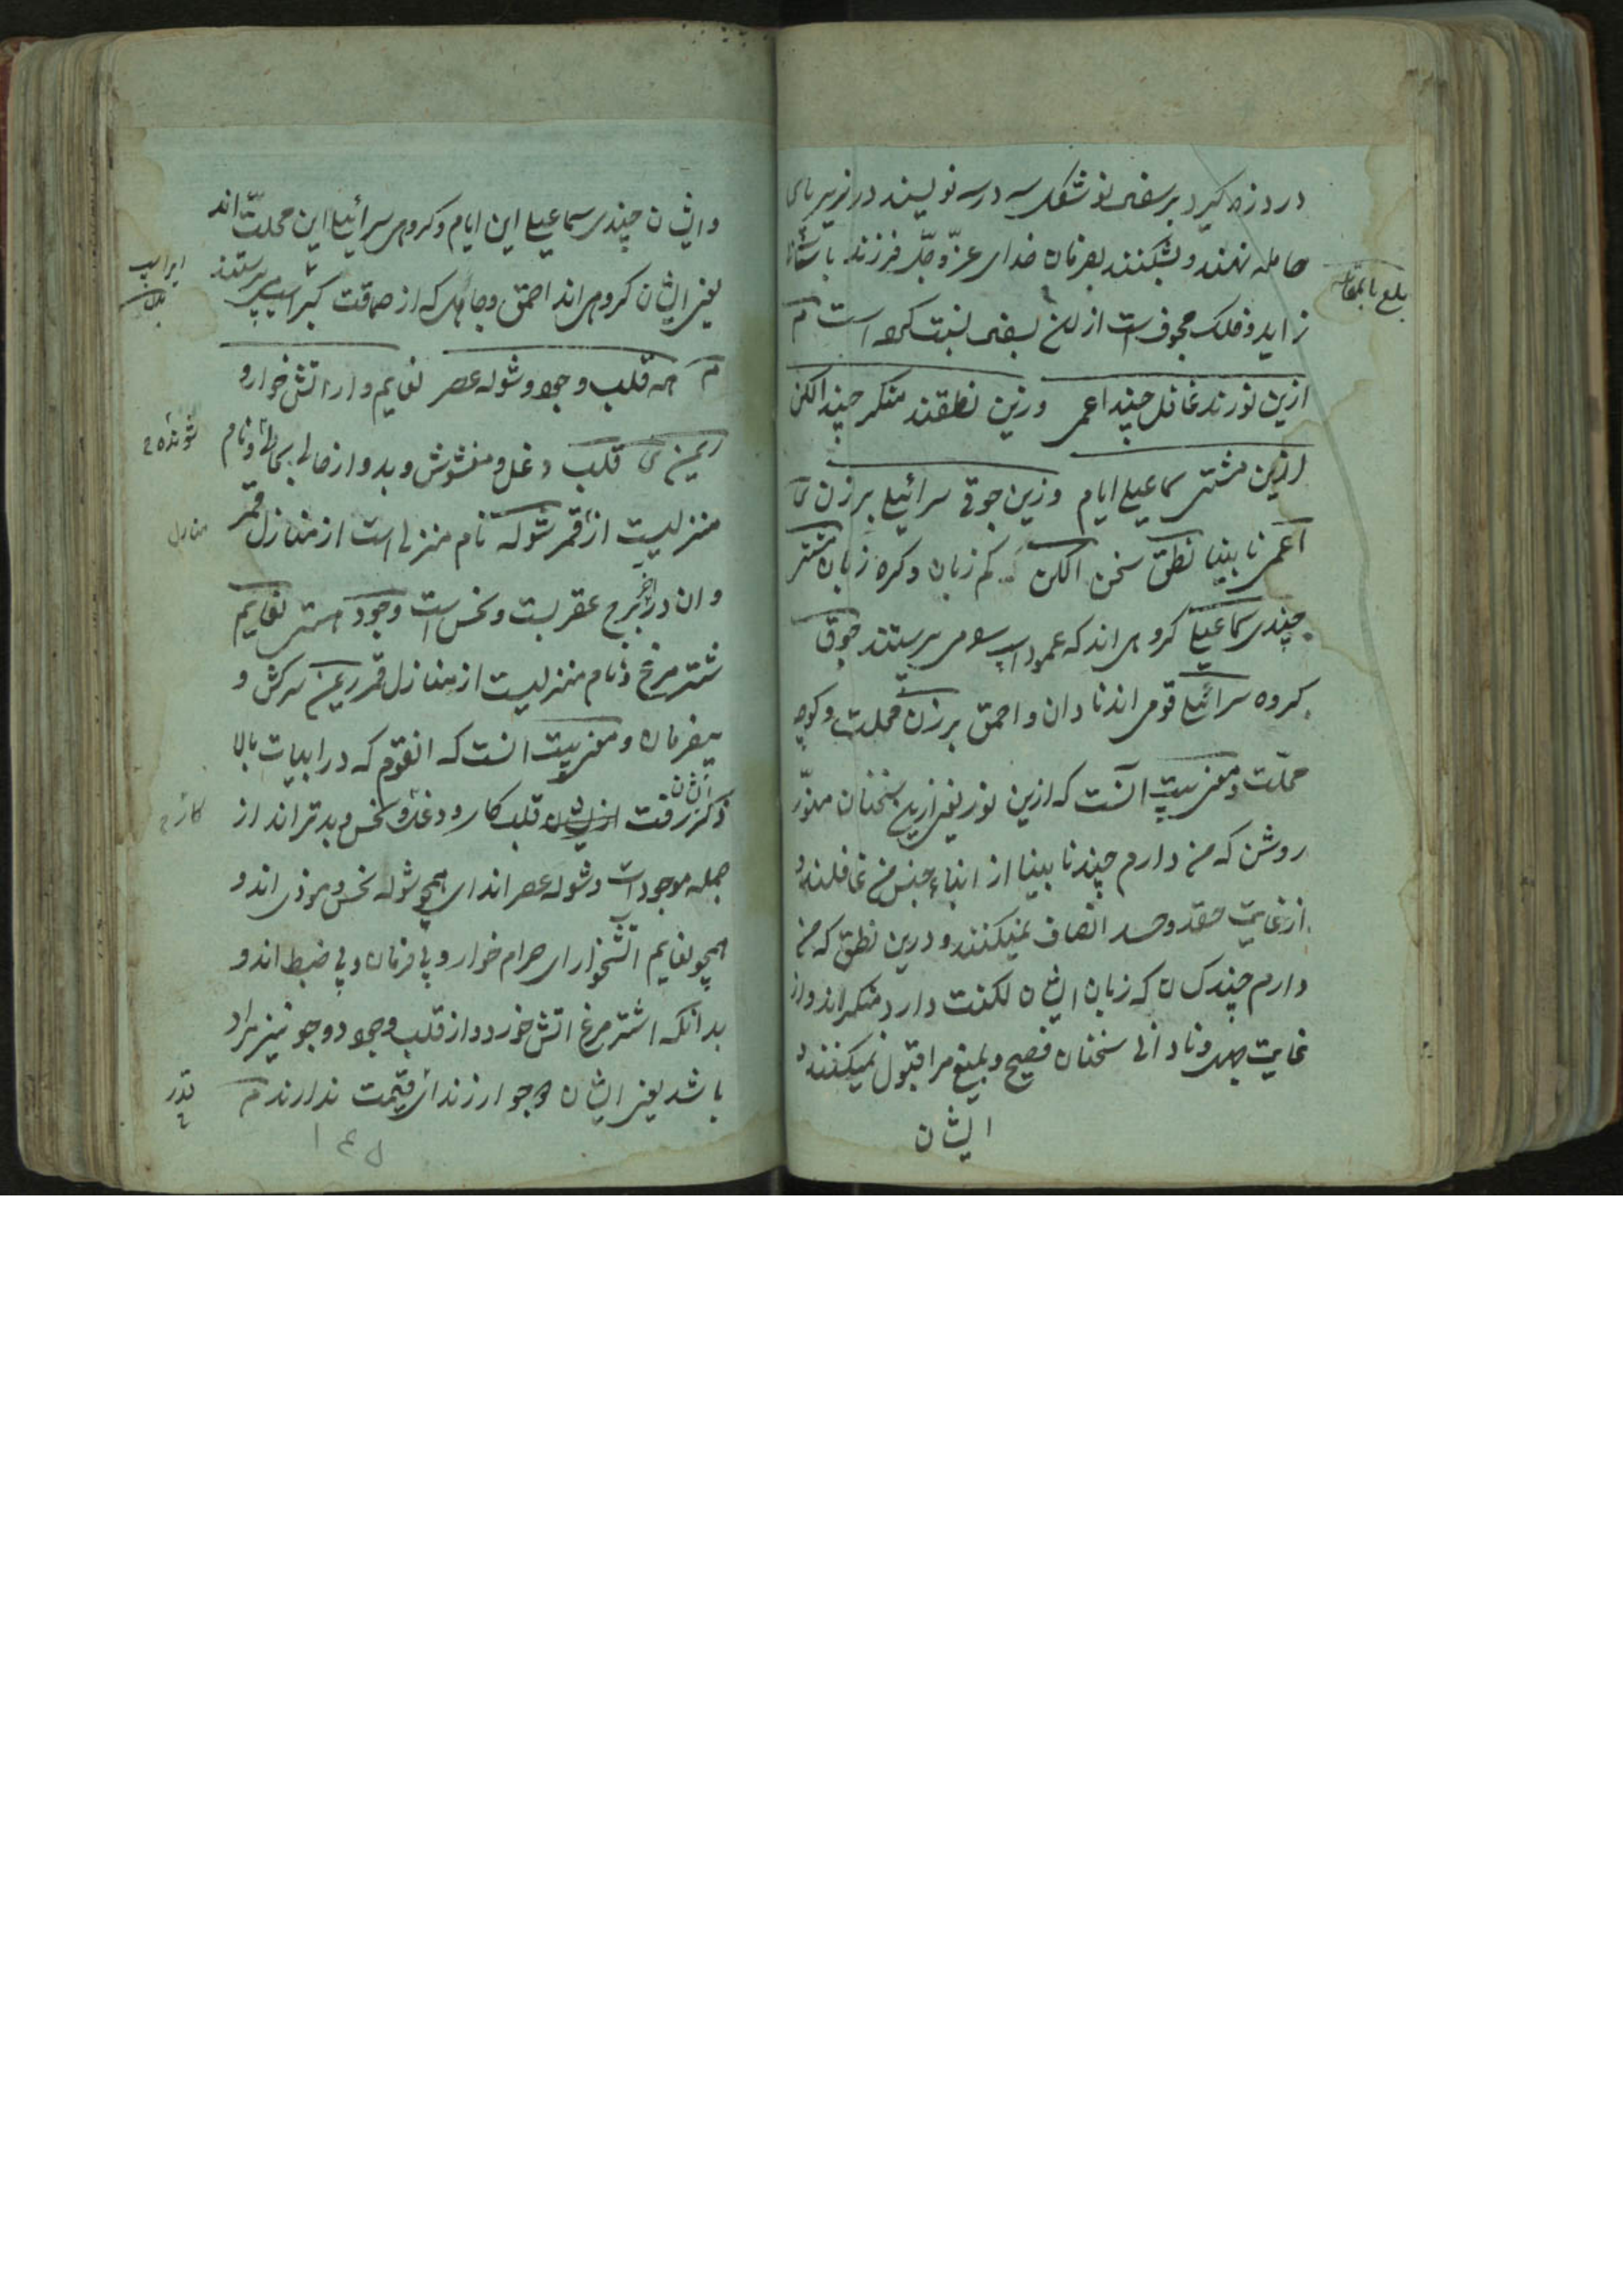 درد زه گیرد بر سفالی نو شکل سه در سه نویسند در زیر پای
حامله نهند و بشکنند بفرمان خدای عز و جل فرزند باسانی
زاید و فلک مجوف است از این نسبت کرده است م
ازین نورند غافل چند اعمی وزین نطقند منکر چند الکن
ازین مشتی سماعیلی ایام وزین جوقی سرائیلی برزن ی
اعمی نابینا نطق سخن الکن کم زبان و کره زبان مشتی
چندی سماعیلی گروهی اند که عمود اسپ می پرستند جوق
گروه سرائیلی قومی اند نادان و احمق برزن محلت و کوچه
محلت و معنی بیت آنست که ازین نور یعنی ازین سخنان منور
روشن که من دارم چند نابینا از ابناء جنس من غافلند و
از غایت حقد و حسد انصاف نمیکنند و درین نطق که من
دارم چند کسان که زبان ایشان لکنت دارد منکر اند و از
غایت جهل و نادانی سخنان فصیح و بلیغ مرا قبول نمیکنند و
ایشان
بلغ بالمقابله
وایشان چندی سماعیلی این ایام و گروهی سرائیلی این محلت اند
یعنی ایشان گروهی اند احمق و جاهل که از حماقت اسپ پرستند
م همه قلب وجود و شوله عصر نعایم وار اتش خوار و
ریمن ی قلب دغل و مغشوش و بد و نام
منزلیست از قمر شوله نام منزلی است از منازل قمر
و ان در آخر برج عقربست و نحس است وجود هستی نعایم
شتر مرغ و نام منزلیست از منازل قمر ریمن سرکش و
بیفرمان و معنی بیت انست که انقوم که در ابیات بالا
ذکر رفت ایشان قلب کار و دغل و نحس و بدتر اند از
جمله موجودات و شوله عصر اند ای همچو شوله نحس و موذی اند و
همچو نعایم اتشخوار ای حرام خوار و بی فرمان و بی ضبط اند و
بدانکه اشتر مرغ اتش خورد و از قلب وجود دو جو نیز مراد
باشد یعنی ایشان دو جو ارزند ای قیمت ندارند م
منازل
قدر